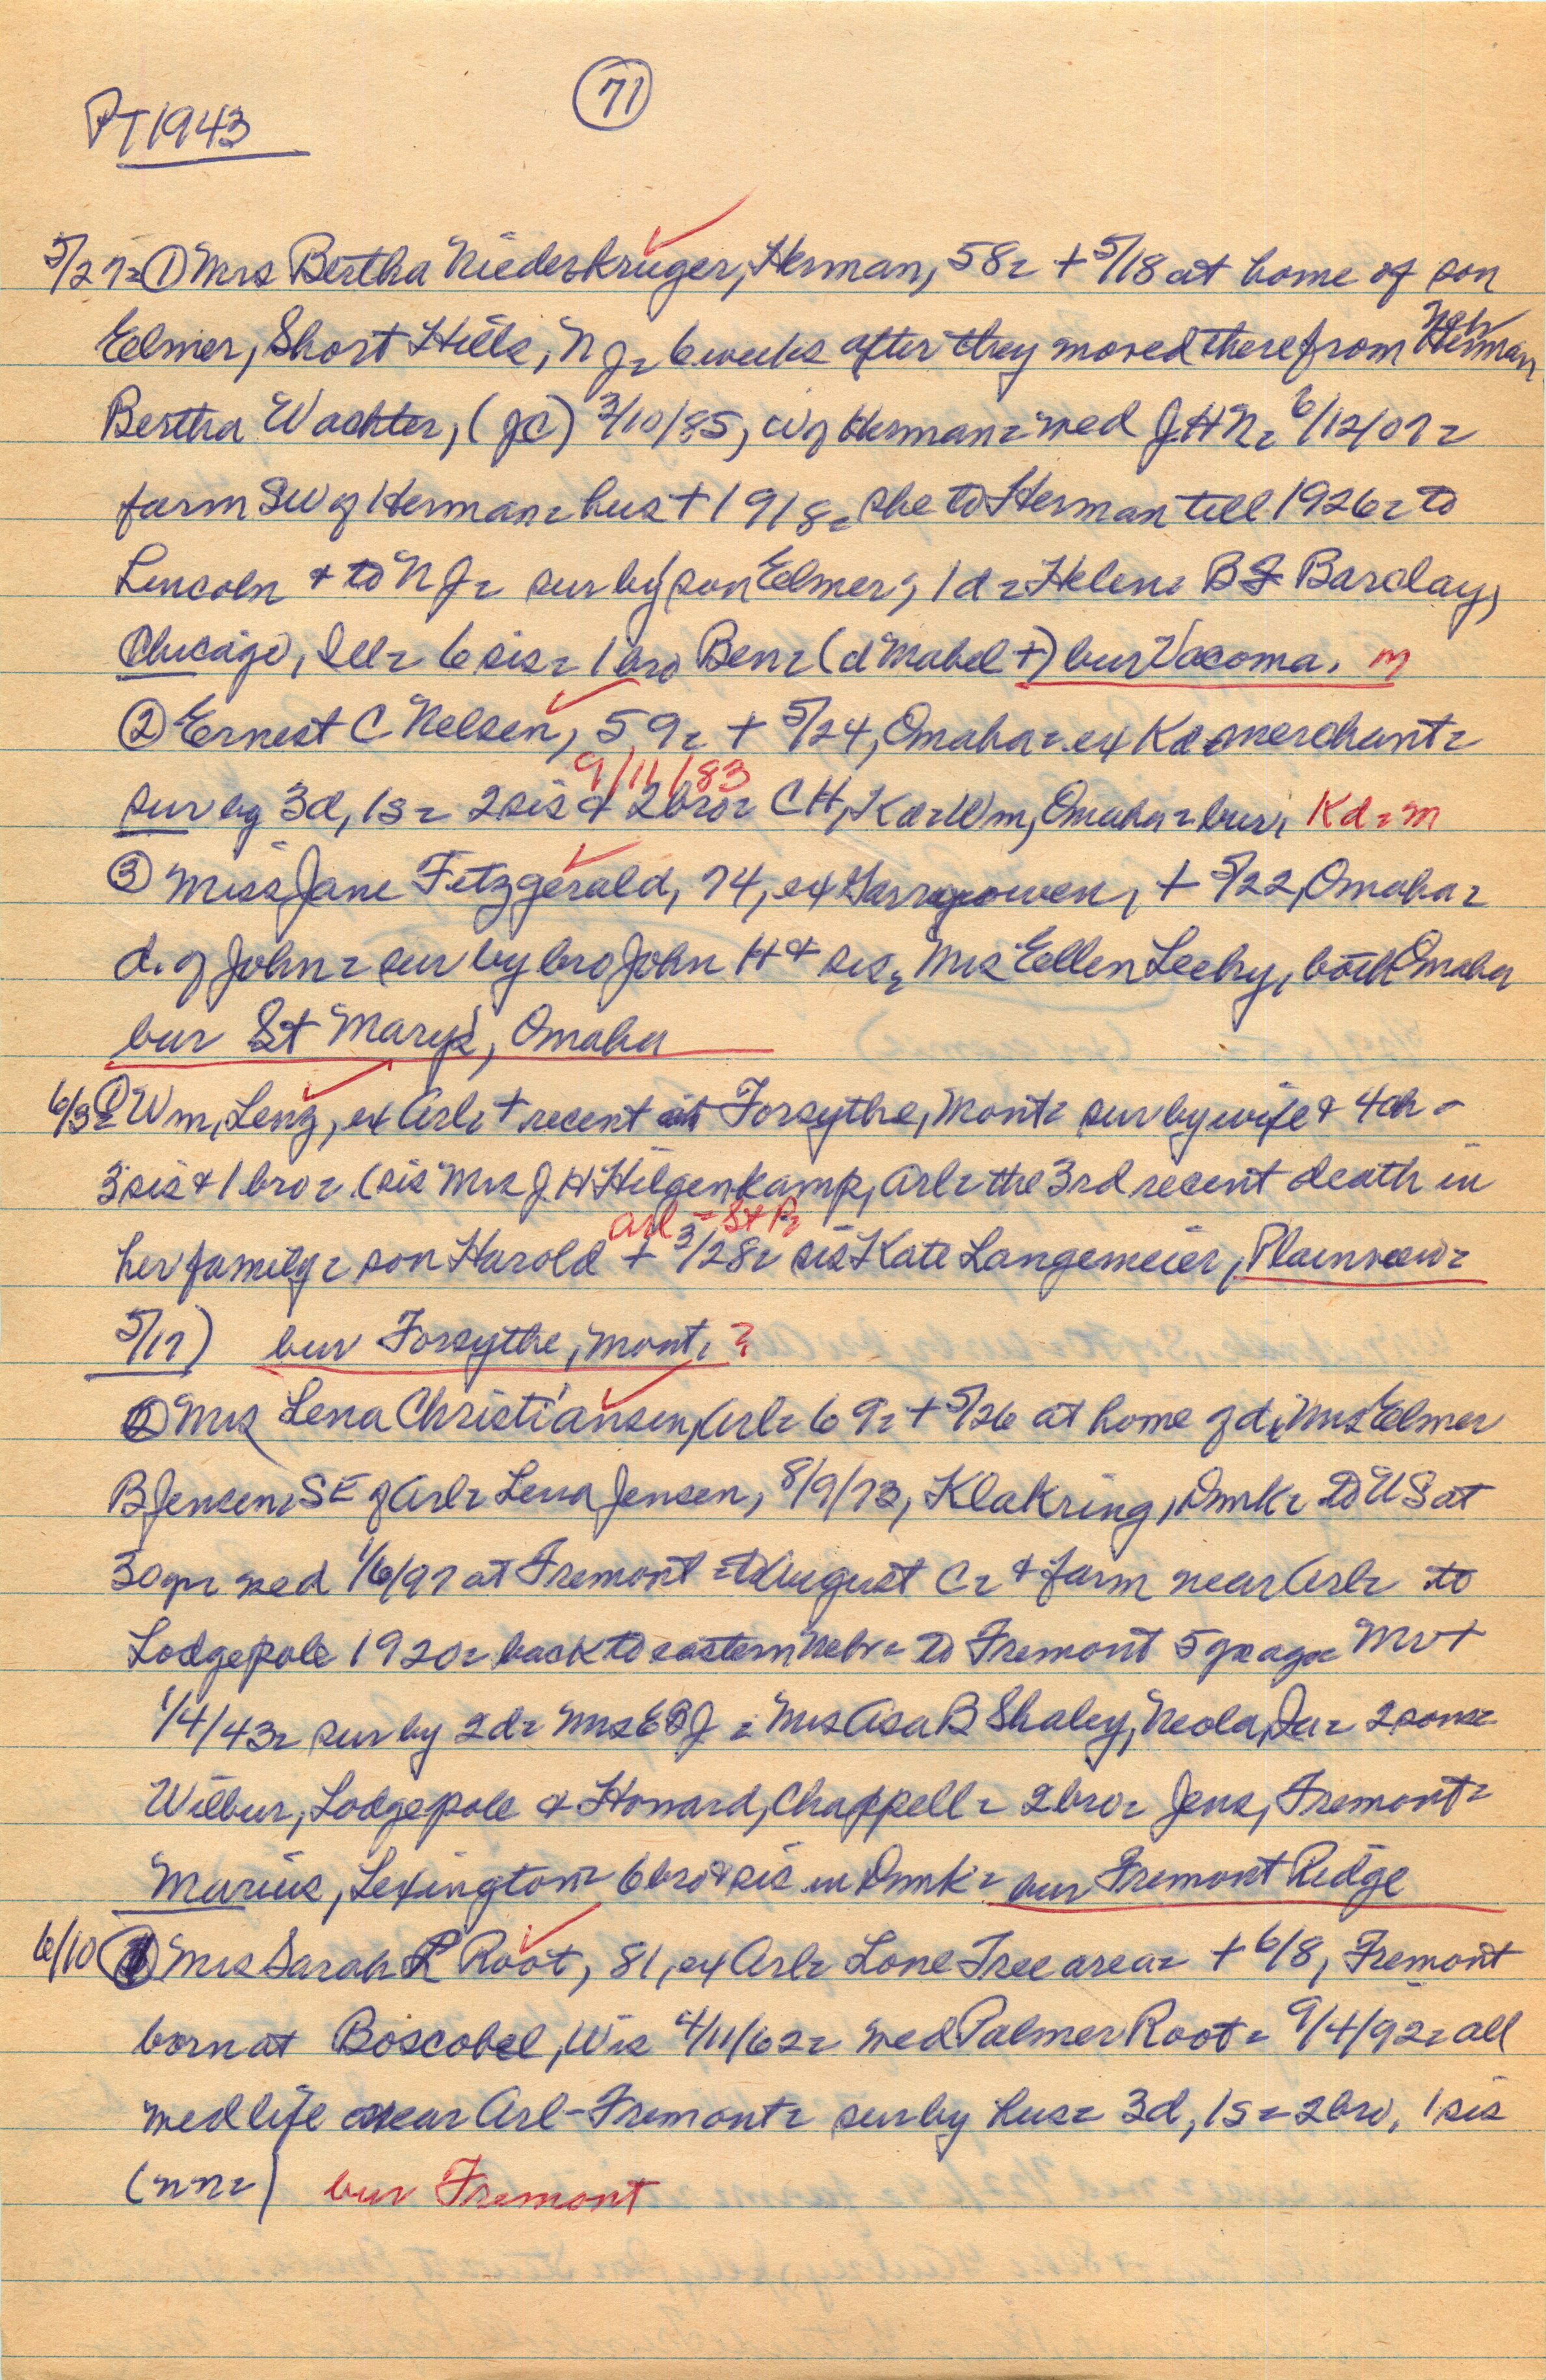 71
PT 1943
5/27= ① Mrs Bertha Niederkruger, Herman, 58= + 5/18 at home of son
Elmer, Short Hills, N J= 6 weeks after they moved there from near Herman
Bertha Wachter, (JC) 3/10/85, W of Herman= med JHN= 6/12/07=
farm SW of Herman= hus + 1918= she to Herman till 1926= to
Lincoln & to N J= sur by son Elmer, 1 d= Helen= B F Barclay,
Chicago, Ill= 6 sis= 1 bro Ben= (d Mabel +) bur Vacoma. m
② Ernest C Nelsen, 59= + 5/24, Omaha= ex Kd merchant=
9/11/83
sur by 3d, 1s= 2 sis & 2 bro= CH, Kd= Wm, Omaha= bur, Kd= m
③ Miss Jane Fitzgerald, 74, ex Garryowen, + 5/22, Omaha=
d. of John= sur by bro John H & sis, Mrs Ellen Leehy, both Omaha
bur St Mary's, Omaha
6/3= ① Wm, Lenz, ex Arl= + recent at Forsythe, Mont= sur by wife & 4 ch -
3 sis & 1 bro= (sis Mrs J H Hilgenkamp, Arl= the 3rd recent death in
Arl - St P=
her family= son Harold + 3/28= sis Kate Langemeier, Plainview=
5/17) bur Forsythe, Mont, ?
② Mrs Lena Christiansen, Arl= 69= + 5/26 at home of d, Mrs Elmer
B Jensen= SE of Arl= Lena Jensen, 8/9/73, Klakring, Dmk= to US at
20 yr= med 1/6/97 at Fremont= to August C= & farm near Arl= to
Lodgepole 1920= back to eastern Nebr= to Fremont 5 yr ago= Mr +
1/4/43= sur by 2d= Mrs EBJ= Mrs Asa B Shaley, Neola, Ia= 2 sons=
Wilbur, Lodgepole & Howard, Chappell= 2 bro= Jens, Fremont=
Marius, Lexington= 6 bro & sis in Dmk= bur Fremont Ridge
6/10 ① Mrs Sarah L Root, 81, ex Arl= Lone Tree area= + 6/8, Fremont
born at Boscobel, Wis 4/11/62= med Palmer Root= 9/4/92= all
med life near Arl-Fremont= sur by hus= 3d, 1s= 2 bro, 1 sis
(nn=) bur Fremont